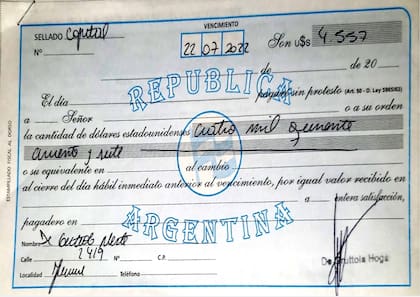 SELLADO Capital
VENCIMIENTO
Nº
22 07 2022
Son u$s 4.557
REPUBLICA
de de 20
El día pagaré sin protesto (Art. 50 - D. Ley 5965/63)
a Señor o a su orden
la cantidad de dólares estadounidenses cuatro mil quiniento
cincuenta y siete
o su equivalente en al cambio
al cierre del día hábil inmediato anterior al vencimiento, por igual valor recibido en
a entera satisfacción,
pagadero en
ARGENTINA
Nombre
Calle 2419 Nº C.P.
Localidad Teléfono
ESTAMPILLADO FISCAL AL DORSO